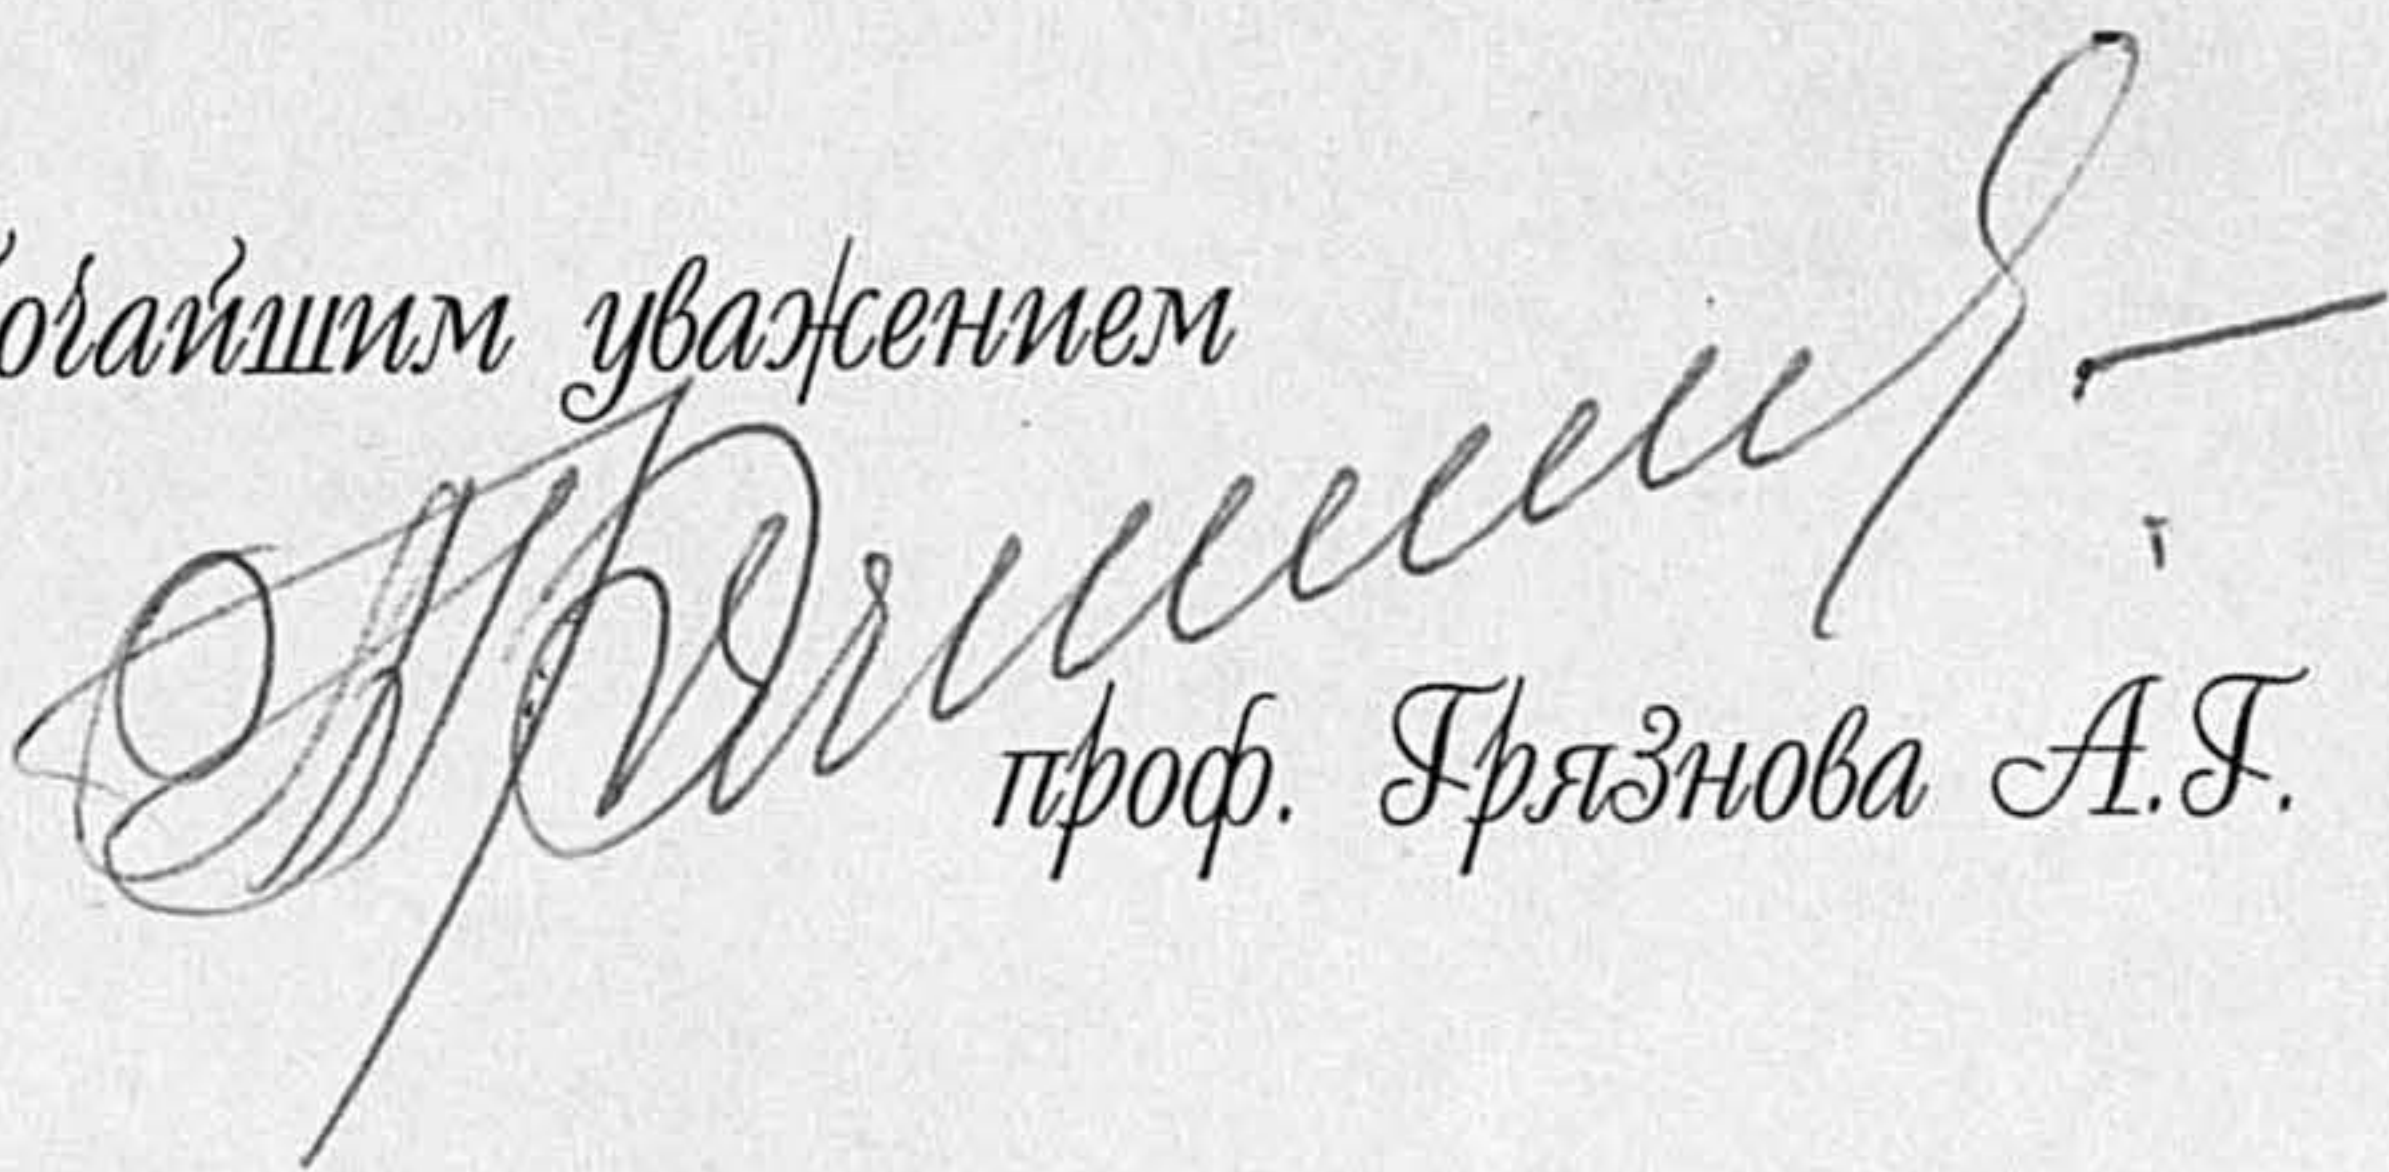 очайшим уважением
проф. Грязнова А.Г.